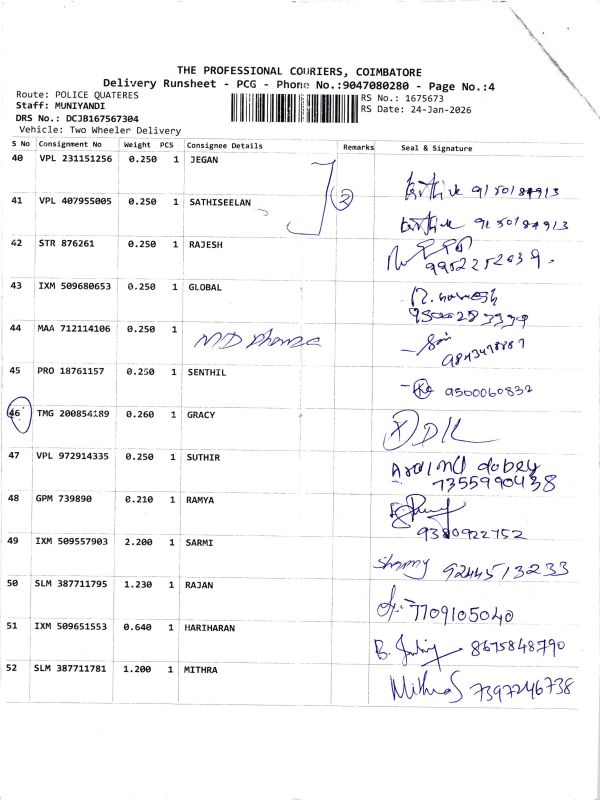 THE PROFESSIONAL COURIERS, COIMBATORE
Delivery Runsheet - PCG - Phone No.:9047080280 - Page No.:4
Route: POLICE QUATERES
Staff: MUNIYANDI
DRS No.: DCJB167567304
Vehicle: Two Wheeler Delivery
RS No.: 1675673
RS Date: 24-Jan-2026
S No Consignment No Weight PCS Consignee Details Remarks Seal & Signature
40 VPL 231151256 0.250 1 JEGAN
2
41 VPL 407955005 0.250 1 SATHISEELAN
42 STR 876261 0.250 1 RAJESH
43 IXM 509680653 0.250 1 GLOBAL
44 MAA 712114106 0.250 1 MD Pharma
45 PRO 18761157 0.250 1 SENTHIL 9500060832
46 TMG 200854189 0.260 1 GRACY
47 VPL 972914335 0.250 1 SUTHIR Arvind dobey
7355990438
48 GPM 739890 0.210 1 RAMYA
9380922752
49 IXM 509557903 2.200 1 SARMI 9244513233
50 SLM 387711795 1.230 1 RAJAN 7709105040
51 IXM 509651553 0.640 1 HARIHARAN 8675848790
52 SLM 387711781 1.200 1 MITHRA Mithra S 7397246738